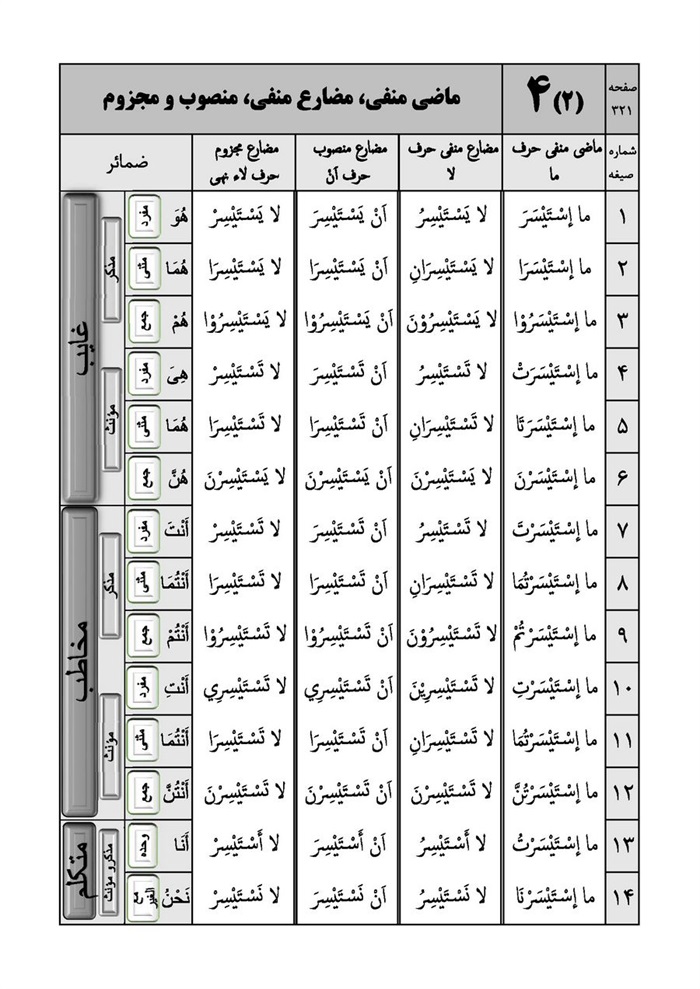 صفحه ۳۲۱ (۲) ۴ ماضی منفی، مضارع منفی، منصوب و مجزوم
شماره صیغه ماضی منفی حرف ما مضارع منفی حرف لا مضارع منصوب حرف اَنْ مضارع مجزوم حرف لاء نهی ضمائر
۱ ما اِسْتَيْسَرَ لا يَسْتَيْسِرُ اَنْ يَسْتَيْسِرَ لا يَسْتَيْسِرْ هُوَ مفرد مذکر غایب
۲ ما اِسْتَيْسَرَا لا يَسْتَيْسِرَانِ اَنْ يَسْتَيْسِرَا لا يَسْتَيْسِرَا هُمَا مثنی
۳ ما اِسْتَيْسَرُوْا لا يَسْتَيْسِرُوْنَ اَنْ يَسْتَيْسِرُوْا لا يَسْتَيْسِرُوْا هُمْ جمع
۴ ما اِسْتَيْسَرَتْ لا تَسْتَيْسِرُ اَنْ تَسْتَيْسِرَ لا تَسْتَيْسِرْ هِيَ مفرد مؤنث
۵ ما اِسْتَيْسَرَتَا لا تَسْتَيْسِرَانِ اَنْ تَسْتَيْسِرَا لا تَسْتَيْسِرَا هُمَا مثنی
۶ ما اِسْتَيْسَرْنَ لا يَسْتَيْسِرْنَ اَنْ يَسْتَيْسِرْنَ لا يَسْتَيْسِرْنَ هُنَّ جمع
۷ ما اِسْتَيْسَرْتَ لا تَسْتَيْسِرُ اَنْ تَسْتَيْسِرَ لا تَسْتَيْسِرْ أَنْتَ مفرد مذکر مخاطب
۸ ما اِسْتَيْسَرْتُمَا لا تَسْتَيْسِرَانِ اَنْ تَسْتَيْسِرَا لا تَسْتَيْسِرَا أَنْتُمَا مثنی
۹ ما اِسْتَيْسَرْتُمْ لا تَسْتَيْسِرُوْنَ اَنْ تَسْتَيْسِرُوْا لا تَسْتَيْسِرُوْا أَنْتُمْ جمع
۱۰ ما اِسْتَيْسَرْتِ لا تَسْتَيْسِرِيْنَ اَنْ تَسْتَيْسِرِي لا تَسْتَيْسِرِي أَنْتِ مفرد مؤنث
۱۱ ما اِسْتَيْسَرْتُمَا لا تَسْتَيْسِرَانِ اَنْ تَسْتَيْسِرَا لا تَسْتَيْسِرَا أَنْتُمَا مثنی
۱۲ ما اِسْتَيْسَرْتُنَّ لا تَسْتَيْسِرْنَ اَنْ تَسْتَيْسِرْنَ لا تَسْتَيْسِرْنَ أَنْتُنَّ جمع
۱۳ ما اِسْتَيْسَرْتُ لا أَسْتَيْسِرُ اَنْ أَسْتَيْسِرَ لا أَسْتَيْسِرْ أَنَا وحده مذکر و مؤنث متکلم
۱۴ ما اِسْتَيْسَرْنَا لا نَسْتَيْسِرُ اَنْ نَسْتَيْسِرَ لا نَسْتَيْسِرْ نَحْنُ مع الغیر